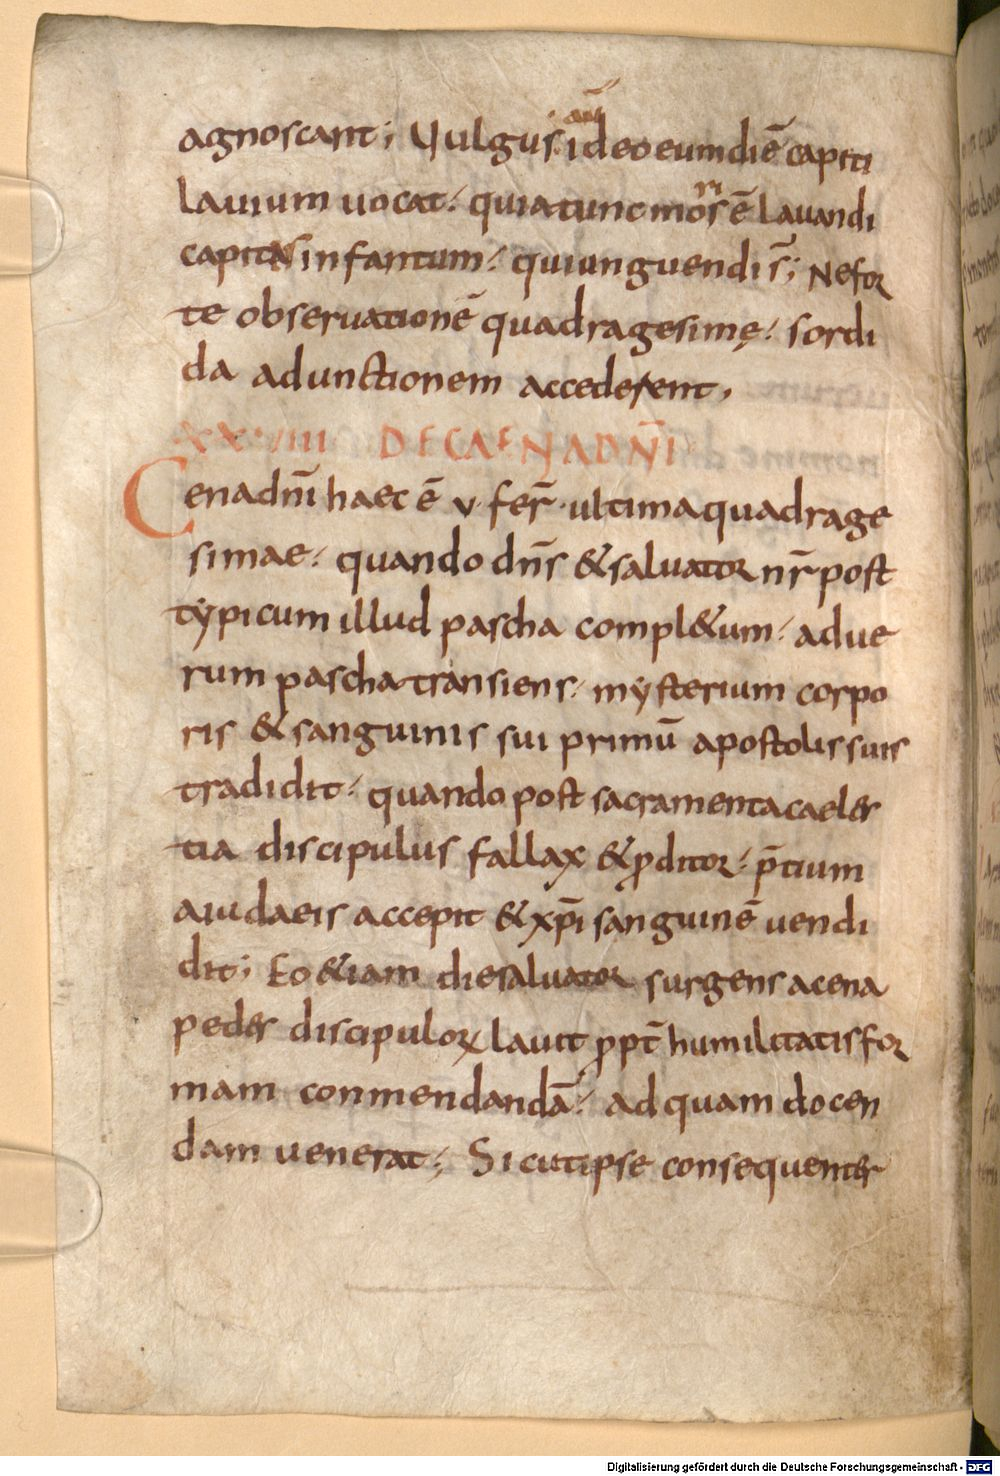 agnoscant; Uulgus ideo eum diē capiti
lauium uocat. quia tunc mos ē lauandi
capita infantum. qui unguendi s̄; Nefor
te obseruationē quadragesimę. sordi
da ad unctionem accederent.
DE CAENA DN̄I
Cena dn̄i haec ē v fer̄ ultima quadrage
simae. quando dn̄s & saluator nr̄ post
typicum illud pascha compl&um. ad ue
rum pascha transiens. mysterium corpo
ris & sanguinis sui primū apostolis suis
tradidit. quando post sacramenta caeles
tia discipulus fallax & ꝓditor. p̄tium
a iudaeis accepit & xp̄i sanguinē uendi
dit; Eo &iam die saluator surgens a cena
pedes discipuloꝝ lauit ꝓpt̄ humilitatis for
mam conmendandā. ad quam docen
dam uenerat; Sicut ipse consequenter
Digitalisierung gefördert durch die Deutsche Forschungsgemeinschaft - DFG